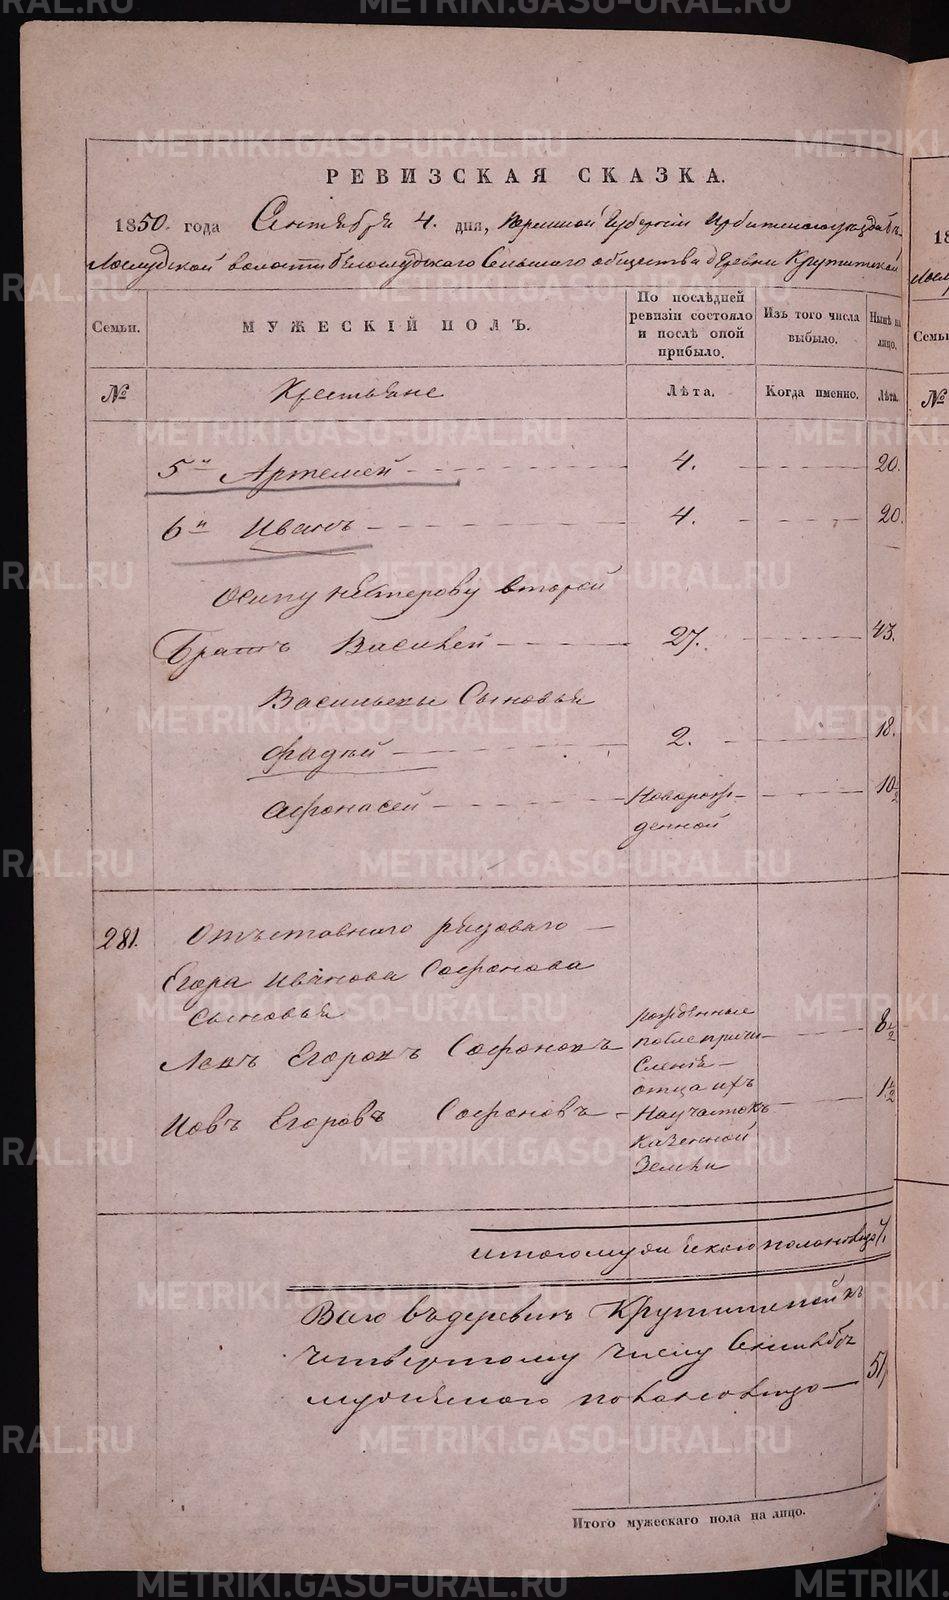 РЕВИЗСКАЯ СКАЗКА.
1850. года Сентября 4. дня, Пермской Губернии Ирбитскаго уезда Бе-
лослудской волости Белослудскаго Сельскаго общества деревни Крутитской
Семьи.
МУЖЕСКІЙ ПОЛЪ.
По послѣдней ревизіи состояло и послѣ оной прибыло.
Изъ того числа выбыло.
Нынѣ на лицо.
№
Крестьяне
Лѣта.
Когда именно.
Лѣта.
5й Артемей 4. 20.
6й Иванъ 4. 20.
Осипу Нестерову второй
Братъ Василей 27. 43.
Васильевы Сыновья
Фадѣй 2. 18.
Афонасей Новорож-
денной 10½
281. Отъставного рядоваго
Егора Иванова Софонова
сыновья
Левъ Егоровъ Софоновъ 8½
Иовъ Егоровъ Софоновъ 1½
рожденные
после причи-
сления
отца ихъ
На участокъ
казенной
Земли
итого мужескаго пола на лицо
Всего въ деревнѣ Крутитской къ
четвертому числу Сентября
мужескаго пола на лицо 51
Итого мужескаго пола на лицо.
METRIKI.GASO-URAL.RU